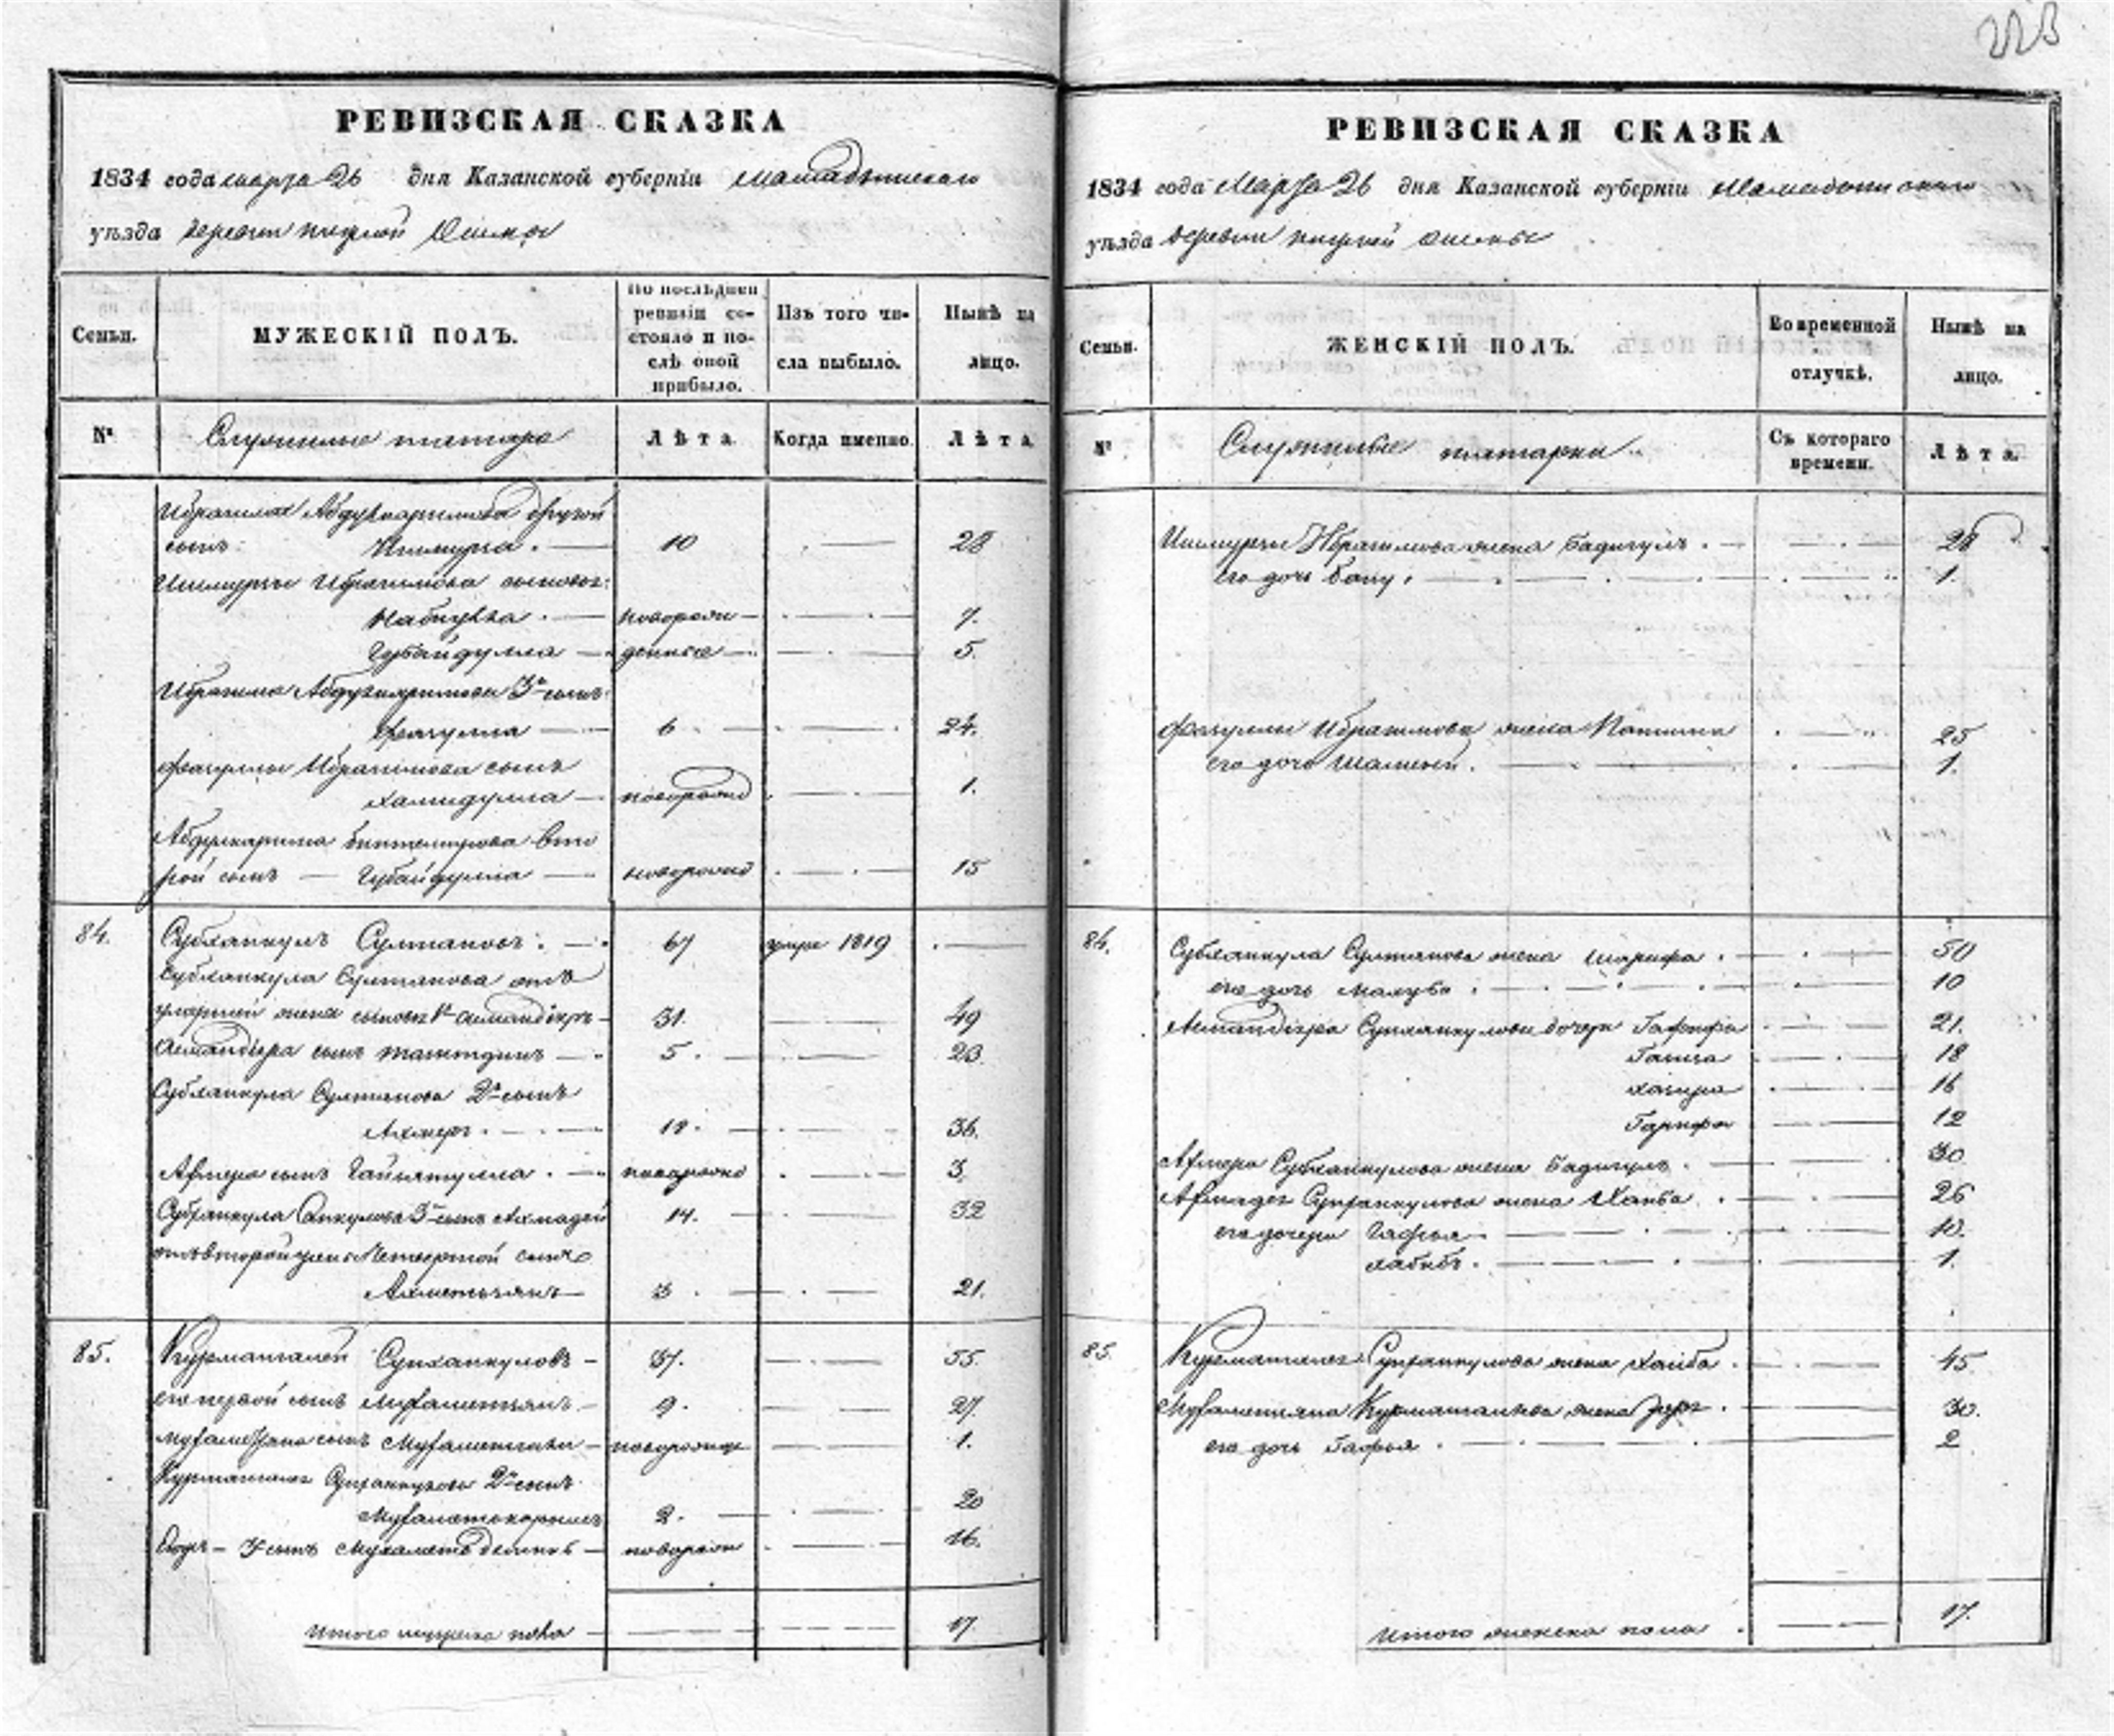 223
РЕВИЗСКАЯ СКАЗКА
1834 года марта 26 дня Казанской губерніи Мамадышскаго
уѣзда деревни
Семьи.
МУЖЕСКІЙ ПОЛЪ.
По послѣдней ревизіи состояло и послѣ оной прибыло.
Изъ того числа выбыло.
Нынѣ на лицо.
№
Служилые татара
Лѣта
Когда именно.
Лѣта
Ибрагима Абдулкаримова другой
сынъ Ишмурза. 10 28
Ишмурзы Ибрагимова сыновья:
новорож- 7.
Губайдулла денные 5.
Ибрагима Абдулкаримова 3й сынъ
Фазулла 6 24.
Фазуллы Ибрагимова сынъ
Хамидулла новорожд 1.
Абдулкарима Биктемирова вто
рой сынъ Губайдулла новорожд 15
84. Субханкулъ Султановъ. 67 умре 1819
Субханкула Султанова отъ
умершей жены сынъ 1й 31. 49
сынъ 5. 23.
Субханкула Султанова 2й сынъ
Ахмеръ. 18. 36.
Ахмера сынъ Гайнятулла. новорожд 3.
Субханкула 3й сынъ Ахмадей 14. 32
отъ второй жены четвертой сынъ
Ахметьянъ 3. 21.
85. Курмангалей Супханкуловъ 37. 55.
его первой сынъ Мухаметьянъ 9. 27.
Мухаметьяна сынъ новорожде 1.
Курмангалея Супханкулова 2й сынъ
Мухаметкаримъ 2. 20
3й сынъ новорожд 16.
Итого мужеска пола 17
РЕВИЗСКАЯ СКАЗКА
1834 года Марта 26 дня Казанской губерніи Мамадышскаго
уѣзда деревни
Семьи.
ЖЕНСКІЙ ПОЛЪ.
Во временной отлучкѣ.
Нынѣ на лицо.
№
Служилые татарки
Съ котораго времени.
Лѣта.
Ишмурзы Ибрагимова жена Бадигулъ. 28
его дочь Бану. 1.
Фазуллы Ибрагимова жена 25
его дочь 1.
84. Субханкула Султанова жена Шарифа. 50
его дочь 10
Супханкулова дочери 21.
18
16
Гарифа 12
Ахмера Субханкулова жена Бадигулъ. 30
Ахмадея Супханкулова жена 26
его дочери Гафья 10.
Хабиба. 1.
85. Курмангалея Супханкулова жена 45
Мухаметьяна Курмангалеева жена 30.
его дочь Гафья. 2
Итого женска пола 17.